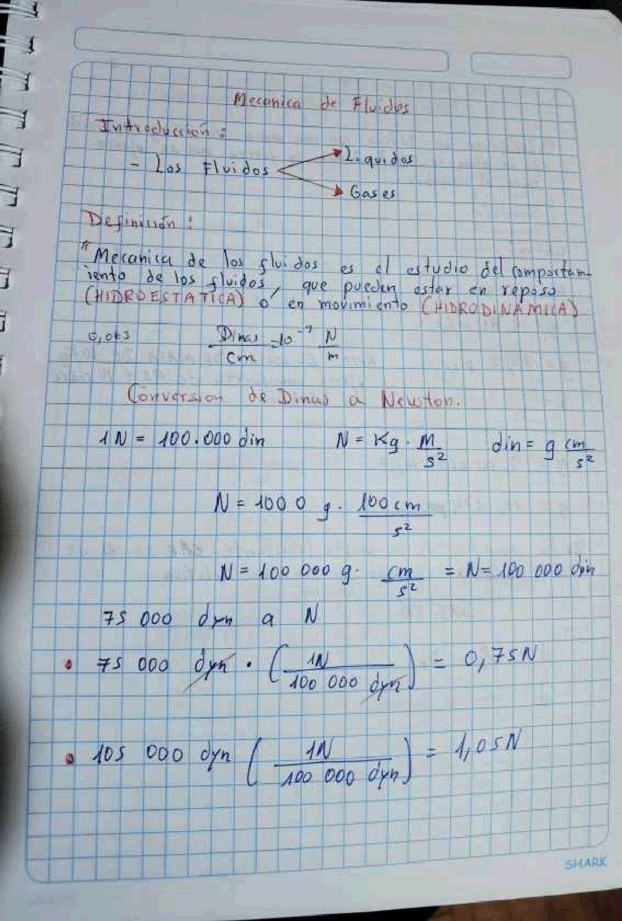 Mecanica de Fluidos
Introducción:
- Los Fluidos
Liquidos
Gases
Definición:
"Mecanica de los fluidos es el estudio del comportam-
iento de los fluidos, que pueden estar en reposo
(HIDROESTATICA) o en movimiento (HIDRODINÁMICA)
0,063 Dinas/cm = 10⁻³ N/m
Conversion de Dinas a Newton.
1N = 100.000 din N = Kg · M/s² din = g cm/s²
N = 1000 g · 100 cm/s²
N = 100 000 g · cm/s² = N = 100 000 dyn
75 000 dyn a N
• 75 000 dyn · (1N/100 000 dyn) = 0,75N
• 105 000 dyn (1N/100 000 dyn) = 1,05N
SHARK